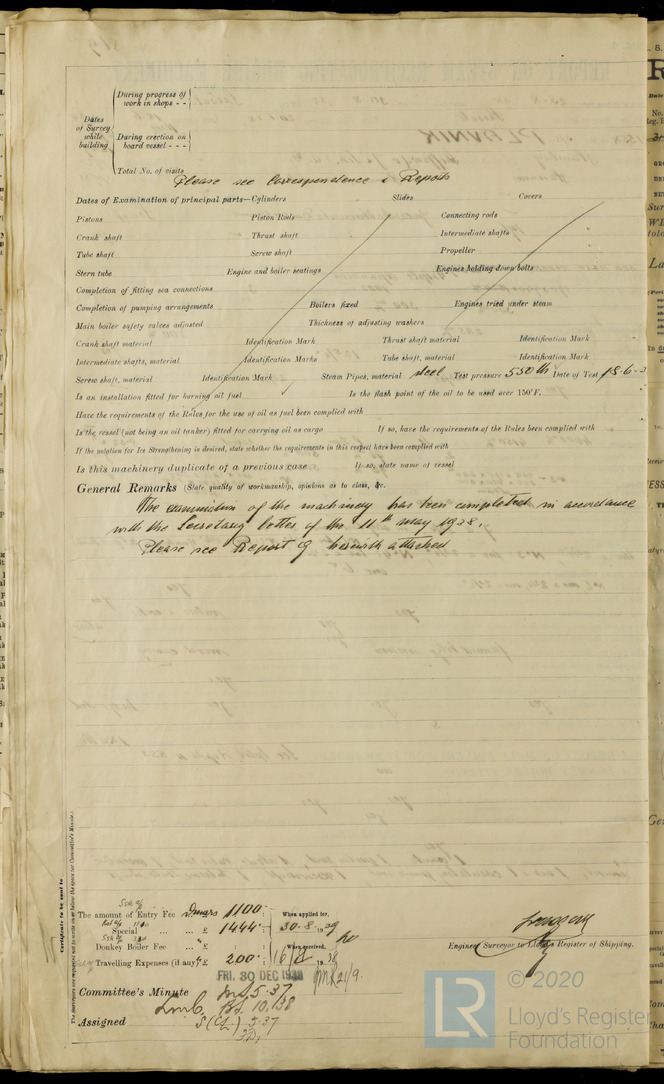 During progress of
work in shops - -
Dates
of Survey
while
building
During erection on
board vessel - - -
Total No. of visits
Please see Correspondence & Reports
Dates of Examination of principal parts—Cylinders Slides Covers
Pistons Piston Rods Connecting rods
Crank shaft Thrust shaft Intermediate shafts
Tube shaft Screw shaft Propeller
Stern tube Engine and boiler seatings Engines holding down bolts
Completion of fitting sea connections
Completion of pumping arrangements Boilers fixed Engines tried under steam
Main boiler safety valves adjusted Thickness of adjusting washers
Crank shaft material Identification Mark Thrust shaft material Identification Mark
Intermediate shafts, material Identification Marks Tube shaft, material Identification Mark
Screw shaft, material Identification Mark Steam Pipes, material steel Test pressure 550 lb Date of Test 18-6-3
Is an installation fitted for burning oil fuel Is the flash point of the oil to be used over 150°F.
Have the requirements of the Rules for the use of oil as fuel been complied with
Is the vessel (not being an oil tanker) fitted for carrying oil as cargo If so, have the requirements of the Rules been complied with
If the notation for Ice Strengthening is desired, state whether the requirements in this respect have been complied with
Is this machinery duplicate of a previous case If so, state name of vessel
General Remarks (State quality of workmanship, opinions as to class, &c.
The examination of the machinery has been completed in accordance
with the Secretary letter of the 11th May 1938.
Please see Report 9 herewith attached
Certificate to be sent to
The amount of Entry Fee 1100 : When applied for,
Special ... ... £ 1444 : 30.8.19
Donkey Boiler Fee ... £ : When received,
Travelling Expenses (if any) £ 200 : 19
FRI. 30 DEC 1938
Engineer Surveyor to Lloyd's Register of Shipping.
Committee's Minute
Assigned
© 2020
LR
Lloyd's Register
Foundation